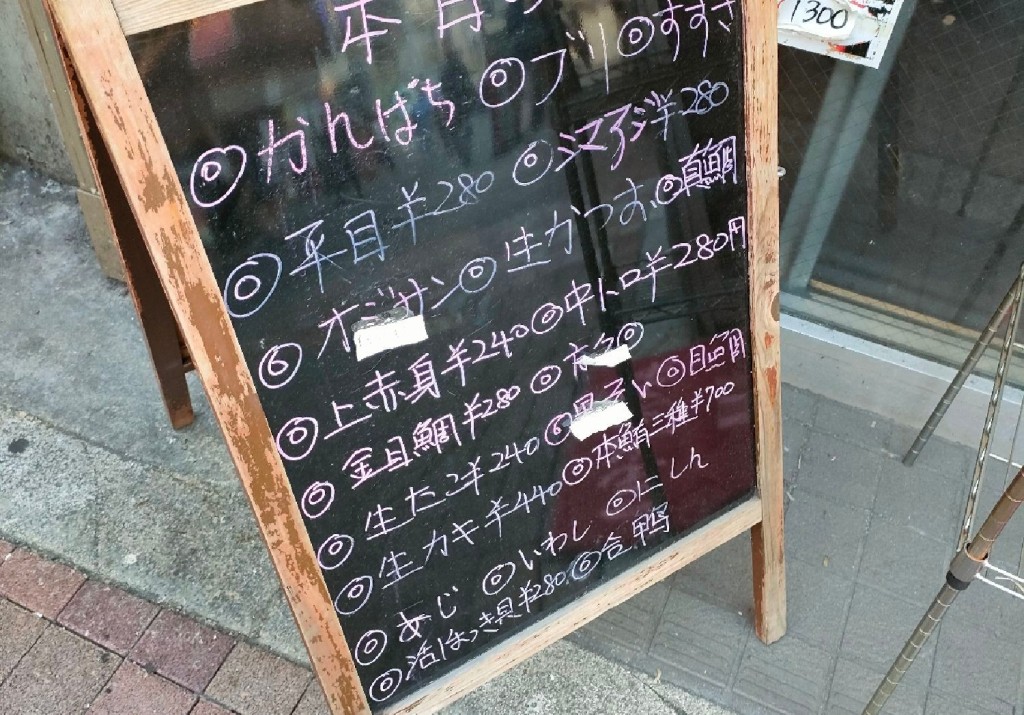 本日の
◎かんぱち ◎ブリ ◎すずき
◎平目¥280 ◎シマアジ¥280
◎オジサン ◎生かつお ◎真鯛
◎上赤身¥240 ◎中トロ¥280円
◎金目鯛¥280 ◎
◎生たこ¥240 ◎ ◎目鯛
◎生カキ¥440 ◎本鮪三種¥700
◎あじ ◎いわし ◎にしん
◎活ほっき貝¥280 ◎合鴨
1300